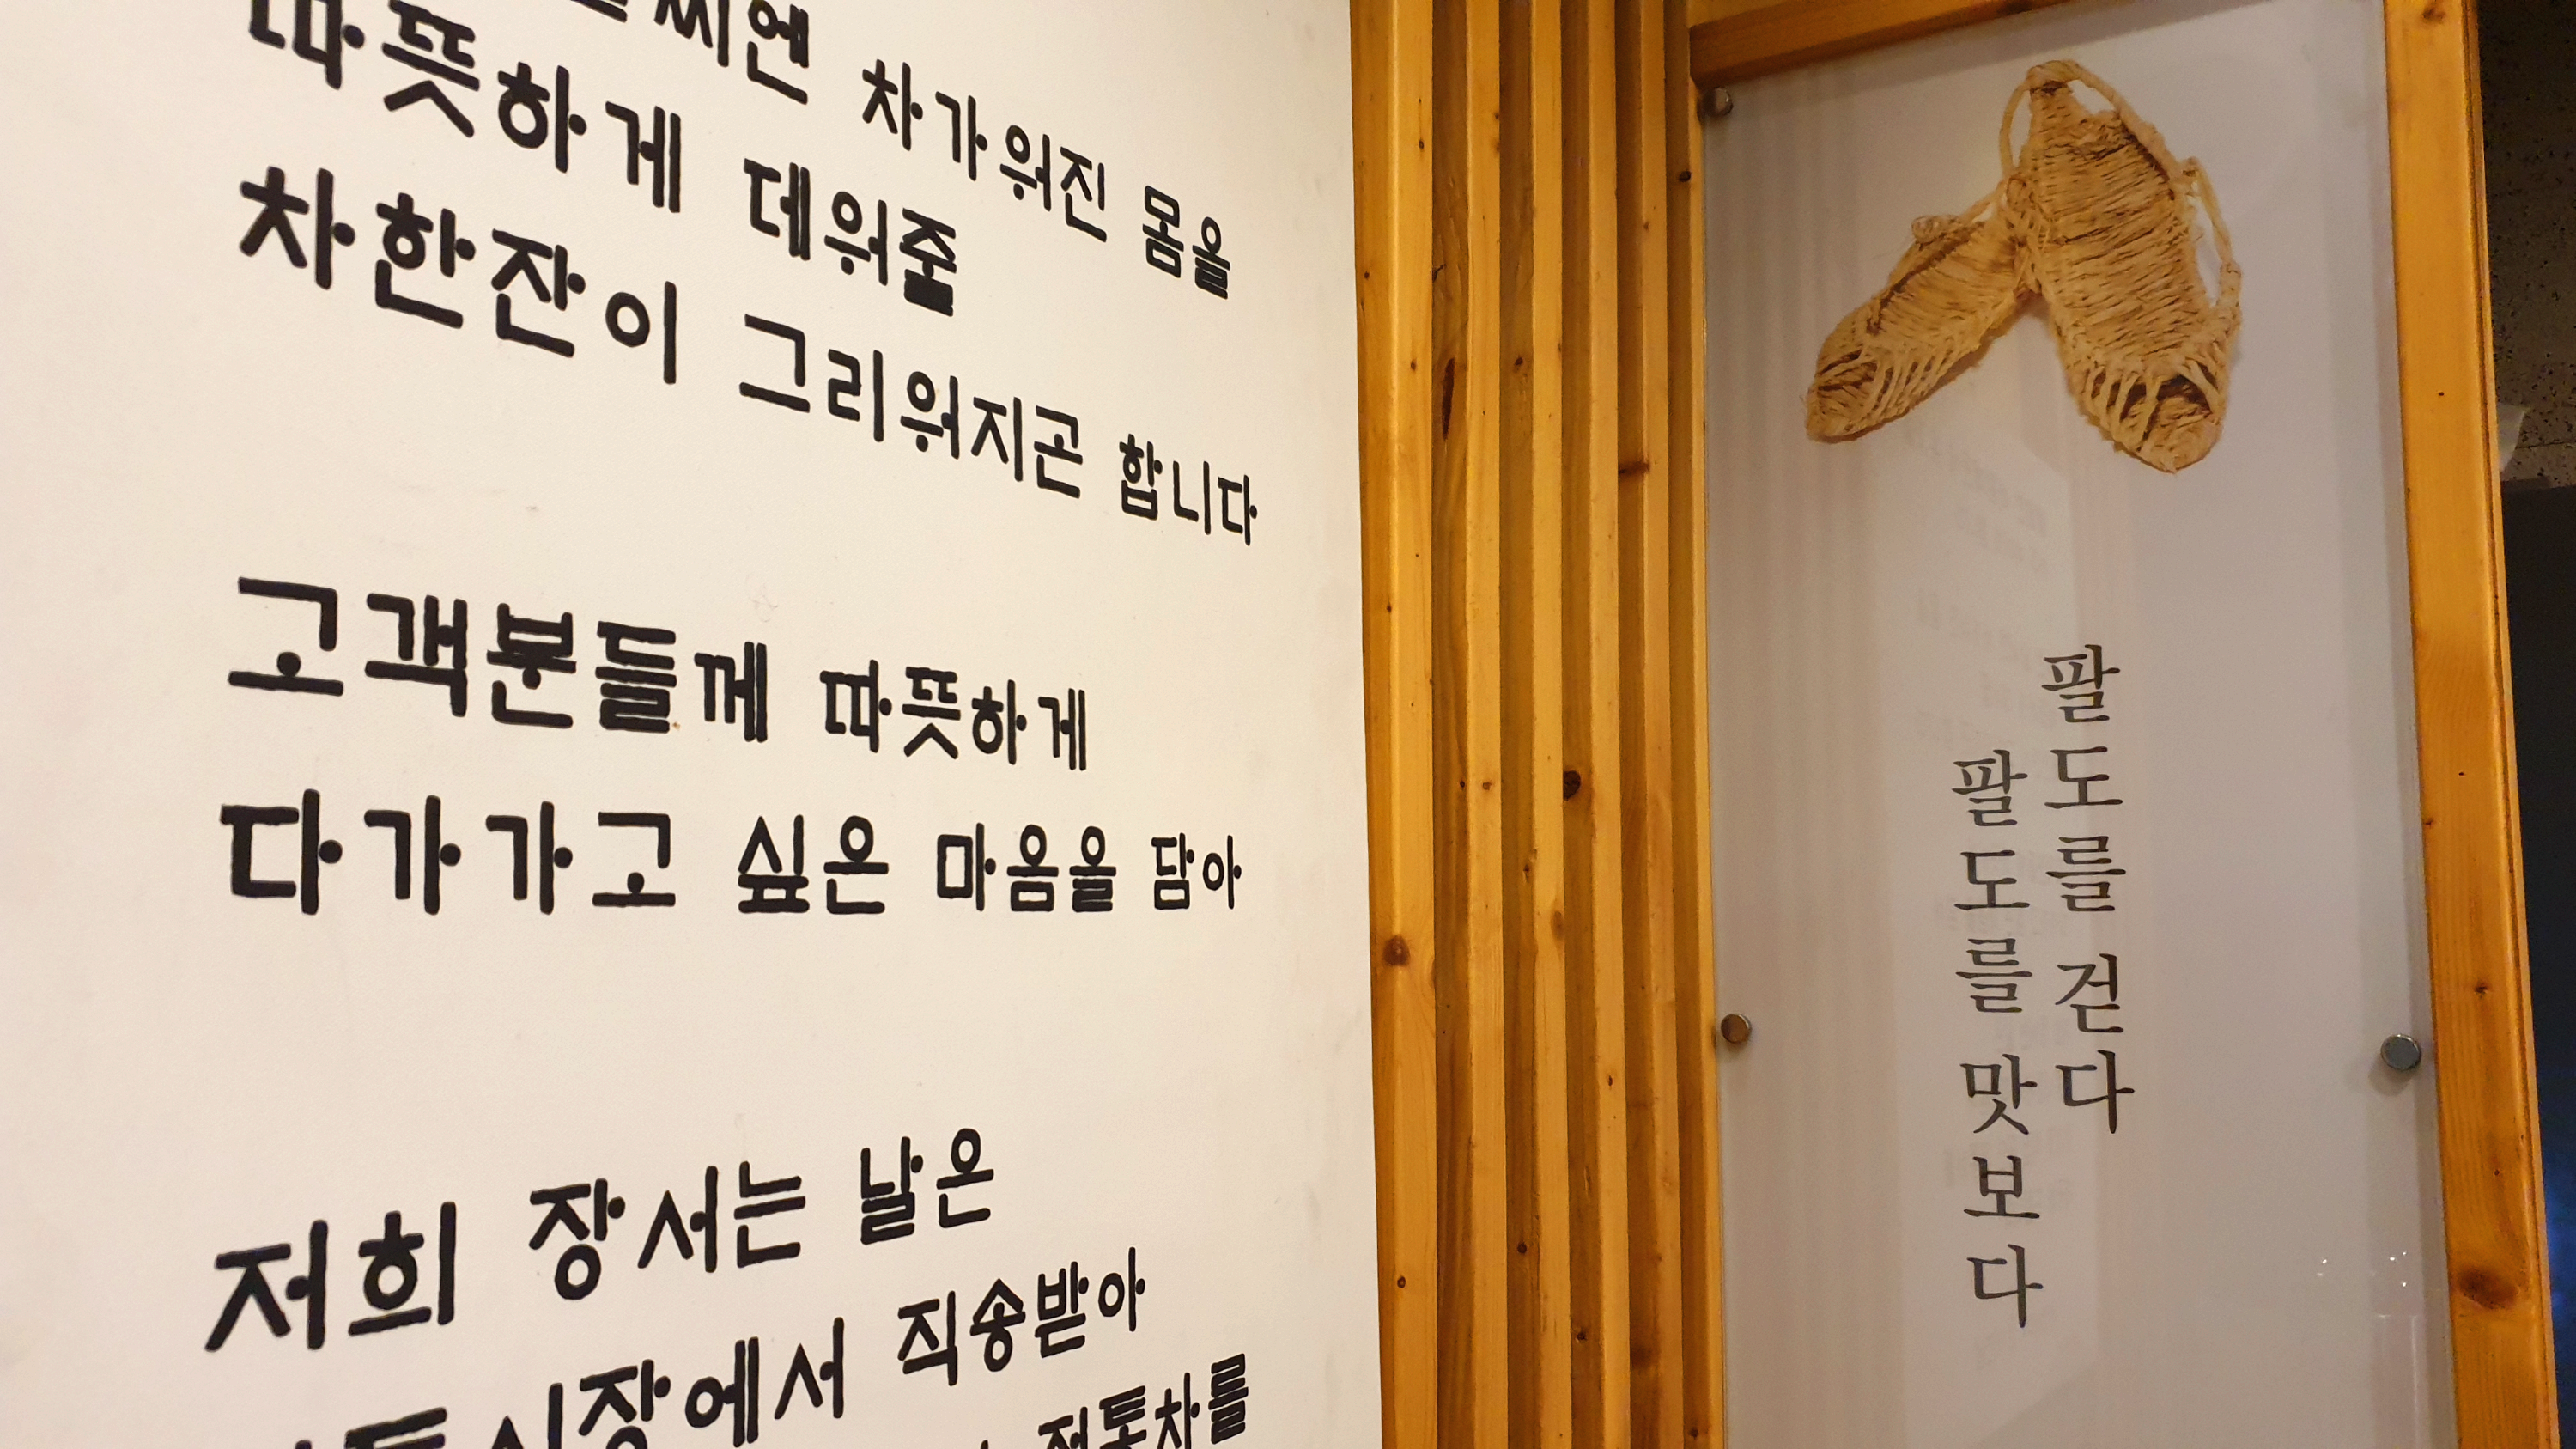 차가워진 몸을
따뜻하게 데워줄
차한잔이 그리워지곤 합니다
고객분들께 따뜻하게
다가가고 싶은 마음을 담아
저희 장서는 날은
직송받아
전통차를
팔도를 걷다
팔도를 맛보다